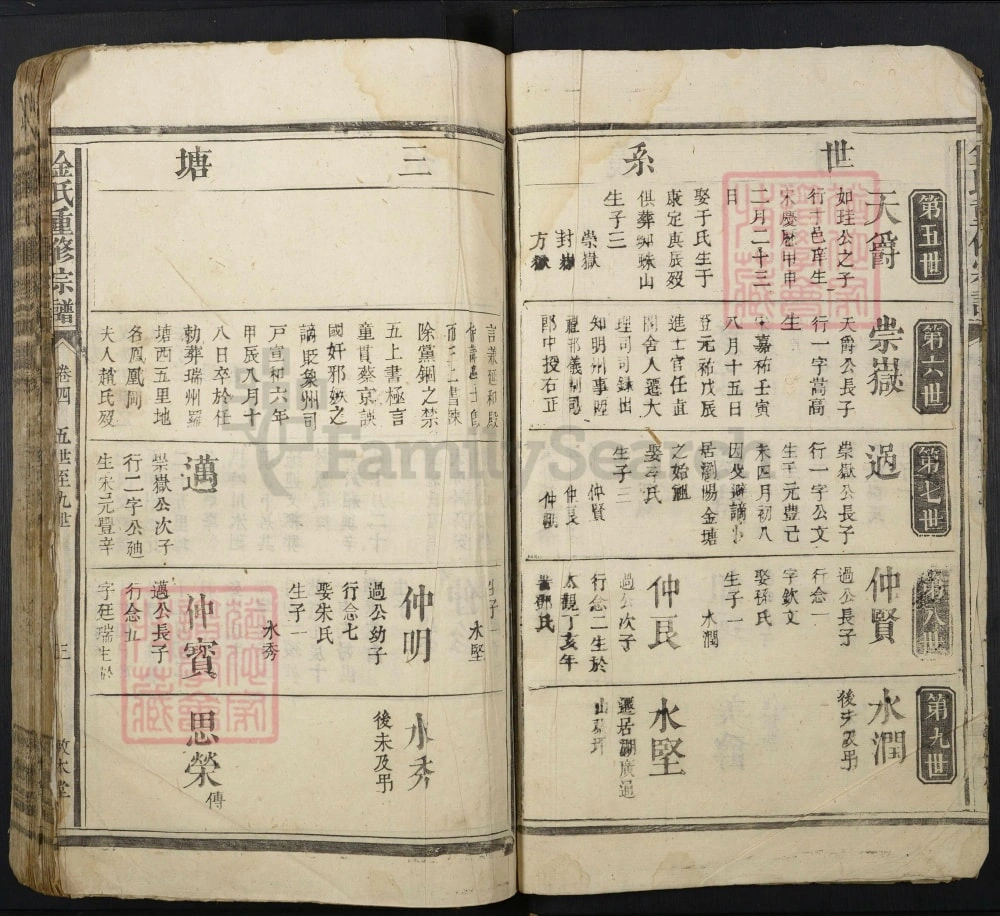 世系
第五世
天爵
如珪公之子
行十邑庠生
宋慶曆甲申
二月二十三
日
娶于氏生于
康定庚辰歿
俱葬蜘蛛山
生子三
崇嶽
封嶽
方嶽
第六世
崇嶽
天爵公長子
行一字嵩高
生
宋嘉祐壬寅
八月十五日
登元祐戊辰
進士官任直
閣舍人遷大
理司司錄出
知明州事陞
禮部儀制司
郎中授右正
第七世
過
崇嶽公長子
行一字公文
生于元豊己
未四月初八
因父避謫
居瀏陽金塘
之始祖
娶李氏
生子三
仲賢
仲良
仲明
第八世
仲賢
過公長子
行念一
字欽文
娶孫氏
生子一
水潤
仲良
過公次子
行念二生於
大觀丁亥年
娶鄧氏
第九世
水潤
後未及弔
水堅
遷居湖廣通
三塘
言兼延和殿
而子上書諫
除黨錮之禁
五上書極言
童貫蔡京誤
國奸邪妬之
謫貶象州司
戶宣和六年
甲辰八月十
八日卒於任
勅葬瑞州羅
塘西五里地
名鳳凰岡
夫人趙氏歿
邁
崇嶽公次子
行二字公廸
生宋元豐辛
生子一
水堅
仲明
過公幼子
行念七
娶朱氏
生子一
水秀
仲賓
邁公長子
行念九
字廷瑞生於
水秀
後未及弔
思榮
傳
金氏重修宗譜
卷四
五世至九世
三
敦本堂
FamilySearch